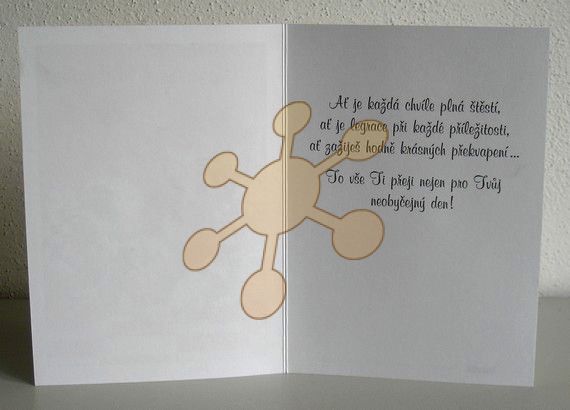 Ať je každá chvíle plná štěstí,
ať je legrace při každé příležitosti,
ať zažiješ hodně krásných překvapení...
To vše Ti přeji nejen pro Tvůj
neobyčejný den!